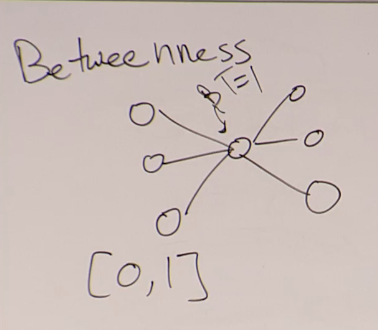 Betweenness
BT=1
[0,1]